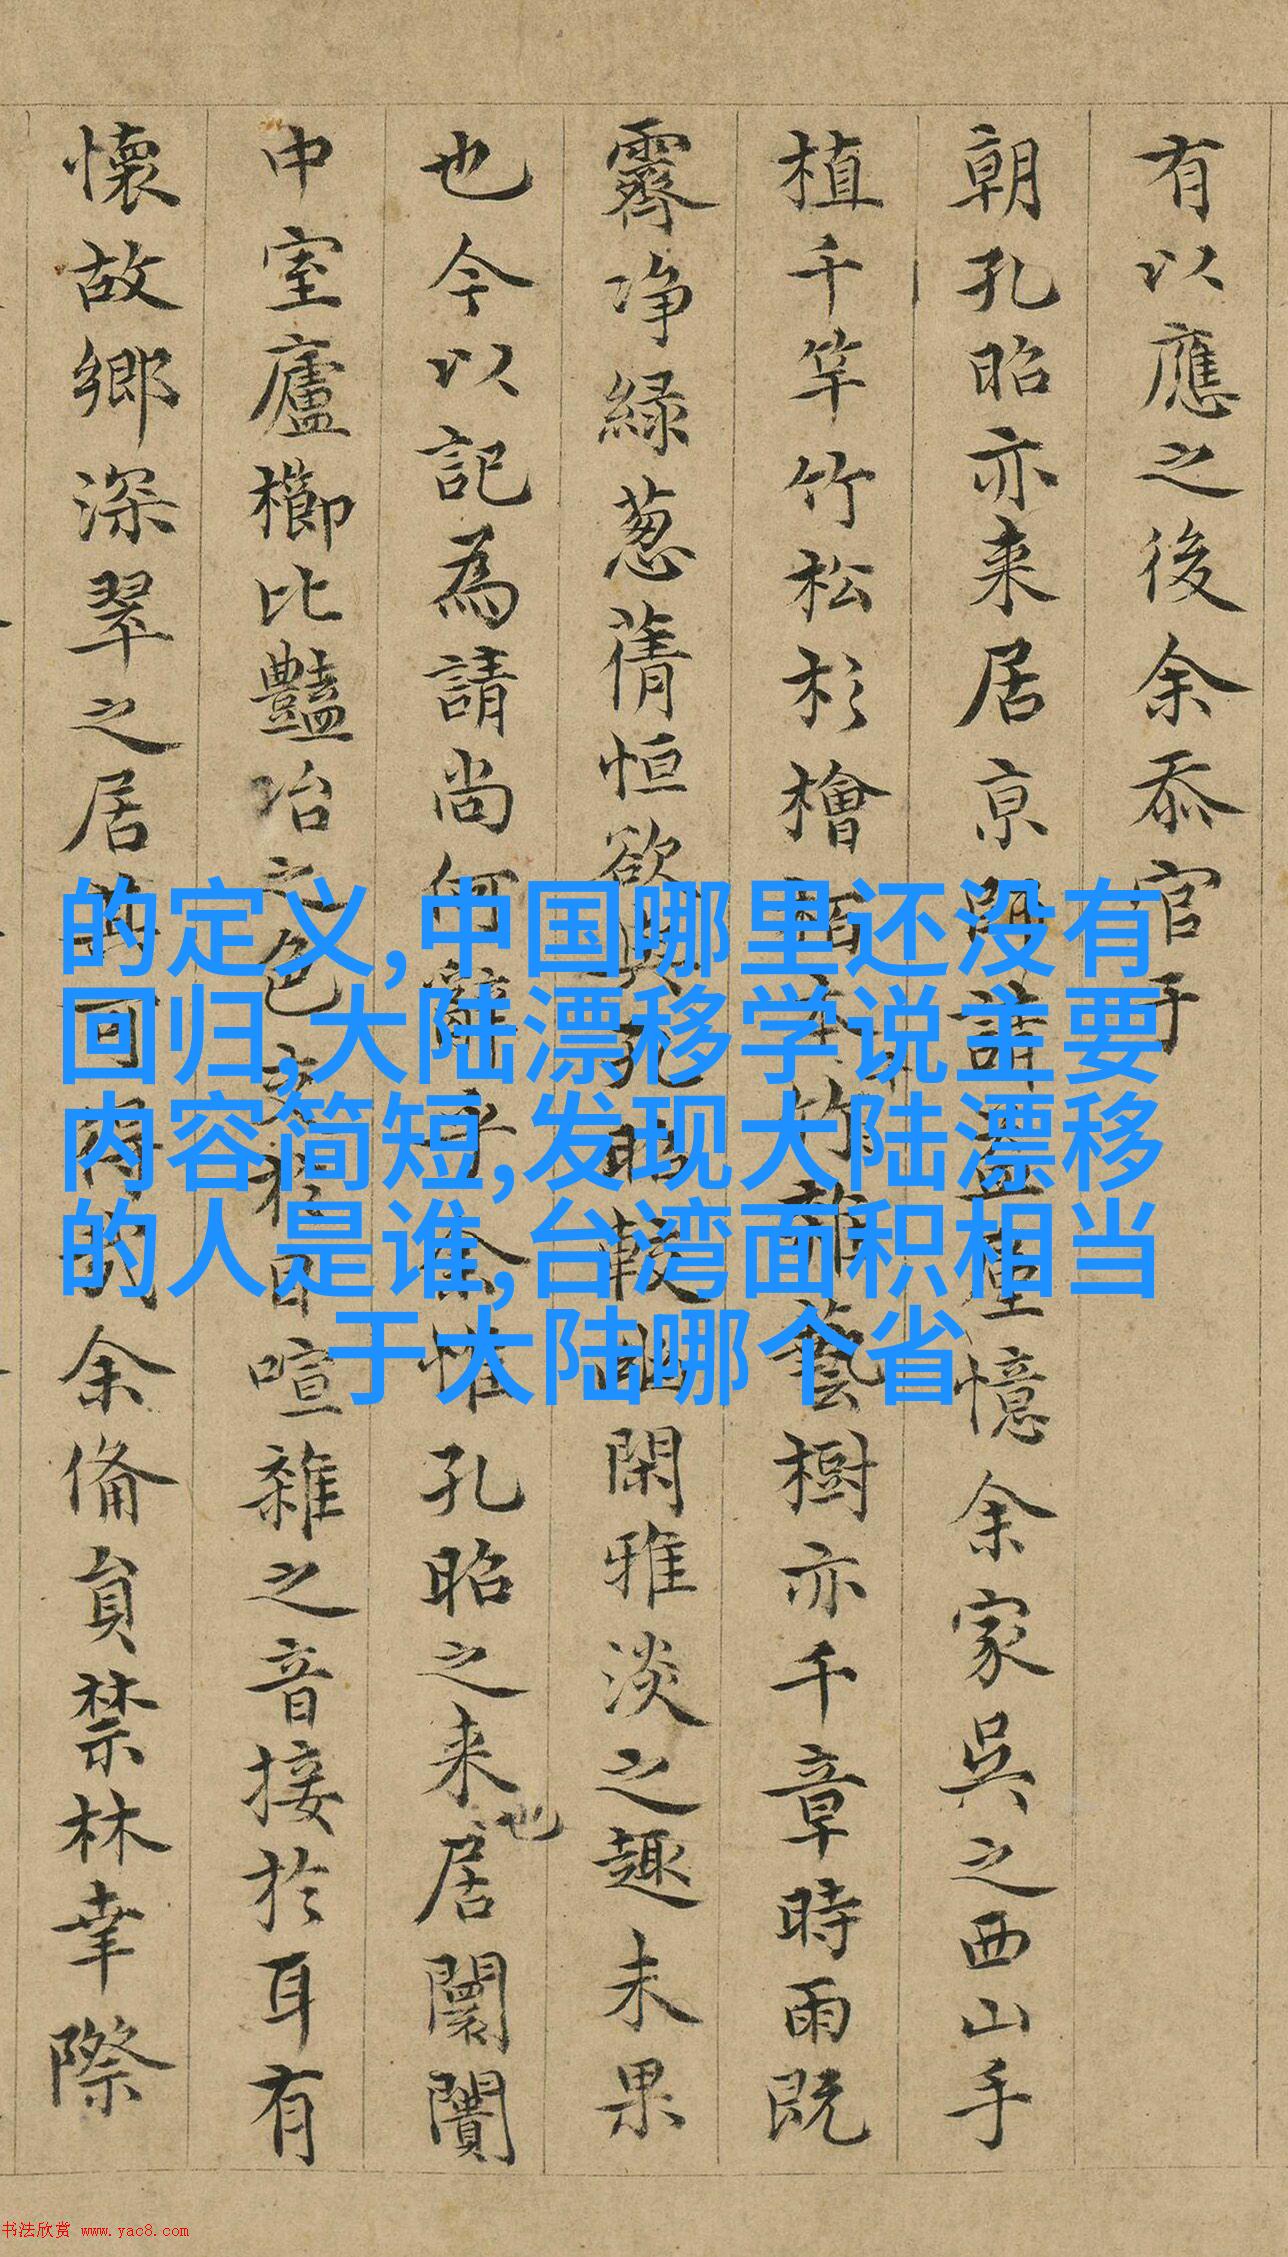 有以應之後余忝官于
朝孔昭亦来居京請憶余家吳之西山手
植千竿竹松杉檜竹藝樹亦千章時雨既
霽净緑葱蒨恒欲與孔昭較閑雅淡之趣未果
也今以記為請尚何辭乎余惟孔昭之来也居闤闠
中室廬櫛比豔冶之色交於目喧雜之音接於耳有
懷故鄉深翠之居其可得余備員禁林幸際
的定义,中国哪里还没有
回归,大陆漂移学说主要
内容简短,发现大陆漂移
的人是谁,台湾面积相当
于大陆哪个省
书法欣赏 www.yac8.com